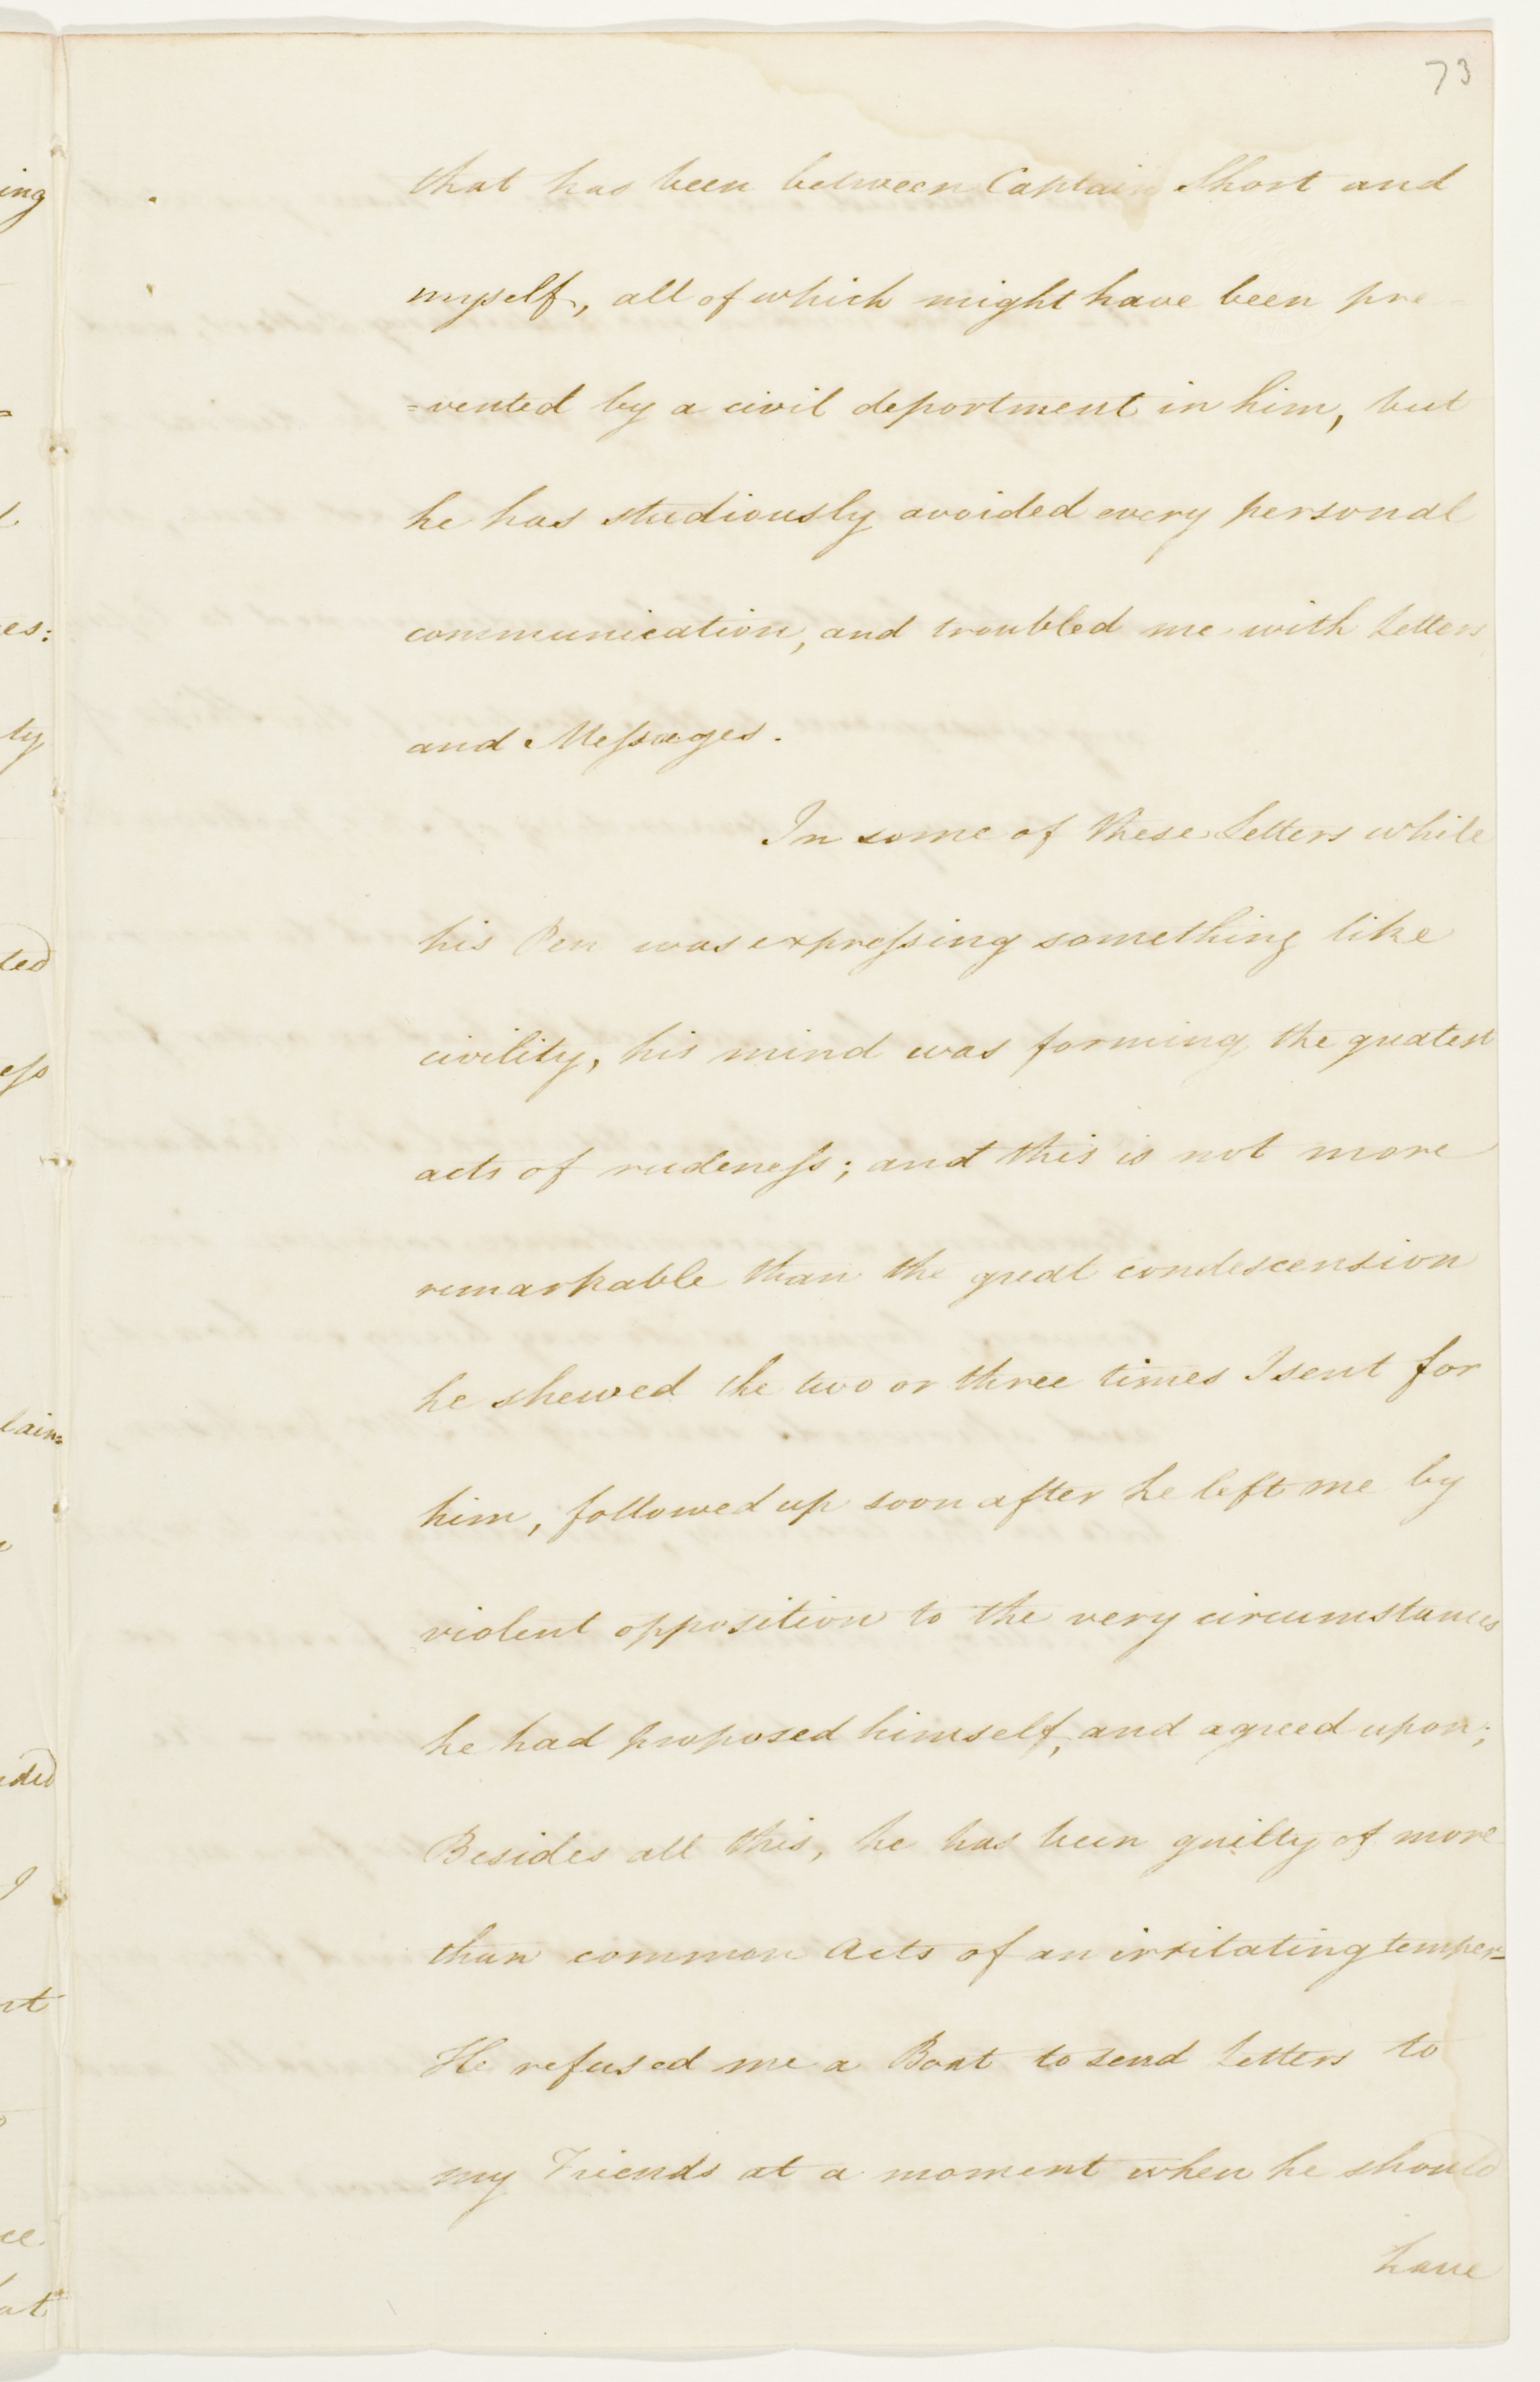 73
that has been between Captain Short and
myself, all of which might have been pre=
=vented by a civil deportment in him, but
he has studiously avoided every personal
communication, and troubled me with Letters
and Meſsages.
In some of these Letters while
his Pen was expreſsing something like
civility, his mind was forming the greatest
acts of rudeneſs; and this is not more
remarkable than the great condescension
he shewed the two or three times I sent for
him, followed up soon after he left me by
violent opposition to the very circumstances
he had proposed himself, and agreed upon;
Besides all this, he has been guilty of more
than common Acts of an irritating temper_
He refused me a Boat to send Letters to
my Friends at a moment when he should
have
ing
es:
ty
ted
eſs
lain=
ded
I
nt
ce
at